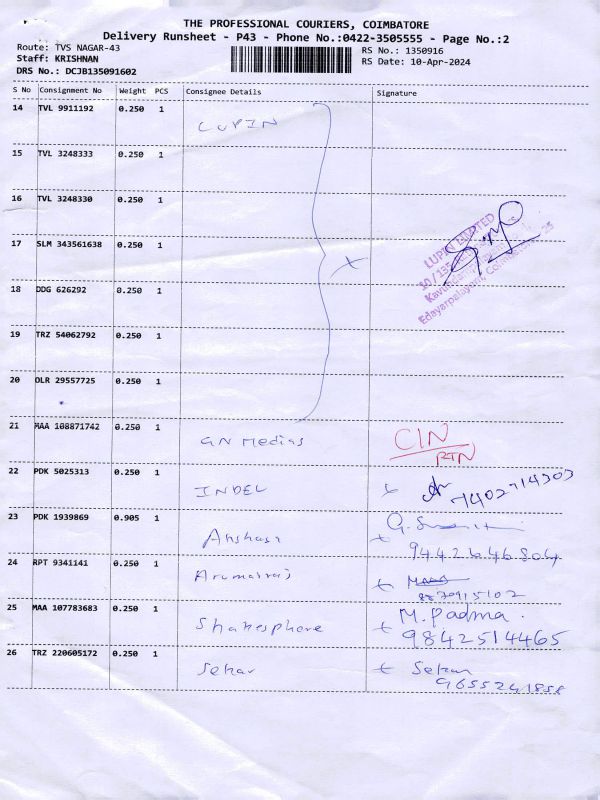 THE PROFESSIONAL COURIERS, COIMBATORE
Delivery Runsheet - P43 - Phone No.:0422-3505555 - Page No.:2
Route: TVS NAGAR-43
RS No.: 1350916
Staff: KRISHNAN
RS Date: 10-Apr-2024
DRS No.: DCJB135091602
S No Consignment No Weight PCS Consignee Details Signature
14 TVL 9911192 0.250 1 LUPIN
15 TVL 3248333 0.250 1
16 TVL 3248330 0.250 1
LUPIN LIMITED
17 SLM 343561638 0.250 1
Edayarpalayam, Coimbatore - 25
18 DDG 626292 0.250 1
19 TRZ 54062792 0.250 1
20 DLR 29557725 0.250 1
21 MAA 108871742 0.250 1 GN Medias CIN
RTN
22 PDK 5025313 0.250 1 INDEL 7402714303
23 PDK 1939869 0.905 1
9442646804
24 RPT 9341141 0.250 1 Arumairaj
8870915102
25 MAA 107783683 0.250 1 Shakesphere M. Padma.
9842514465
26 TRZ 220605172 0.250 1 Sekar Sekar
9655241858